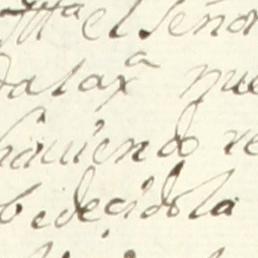 el Señor
dalaxª nue
haviendo re
bedeçidola